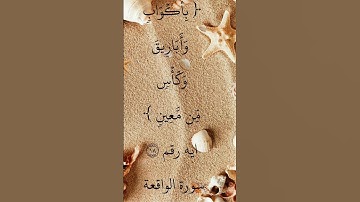 ﴿ بِأَكْوَابٍ
وَأَبَارِيقَ
وَكَأْسٍ
مِّن مَّعِينٍ ﴾
آيه رقم
سورة الواقعة